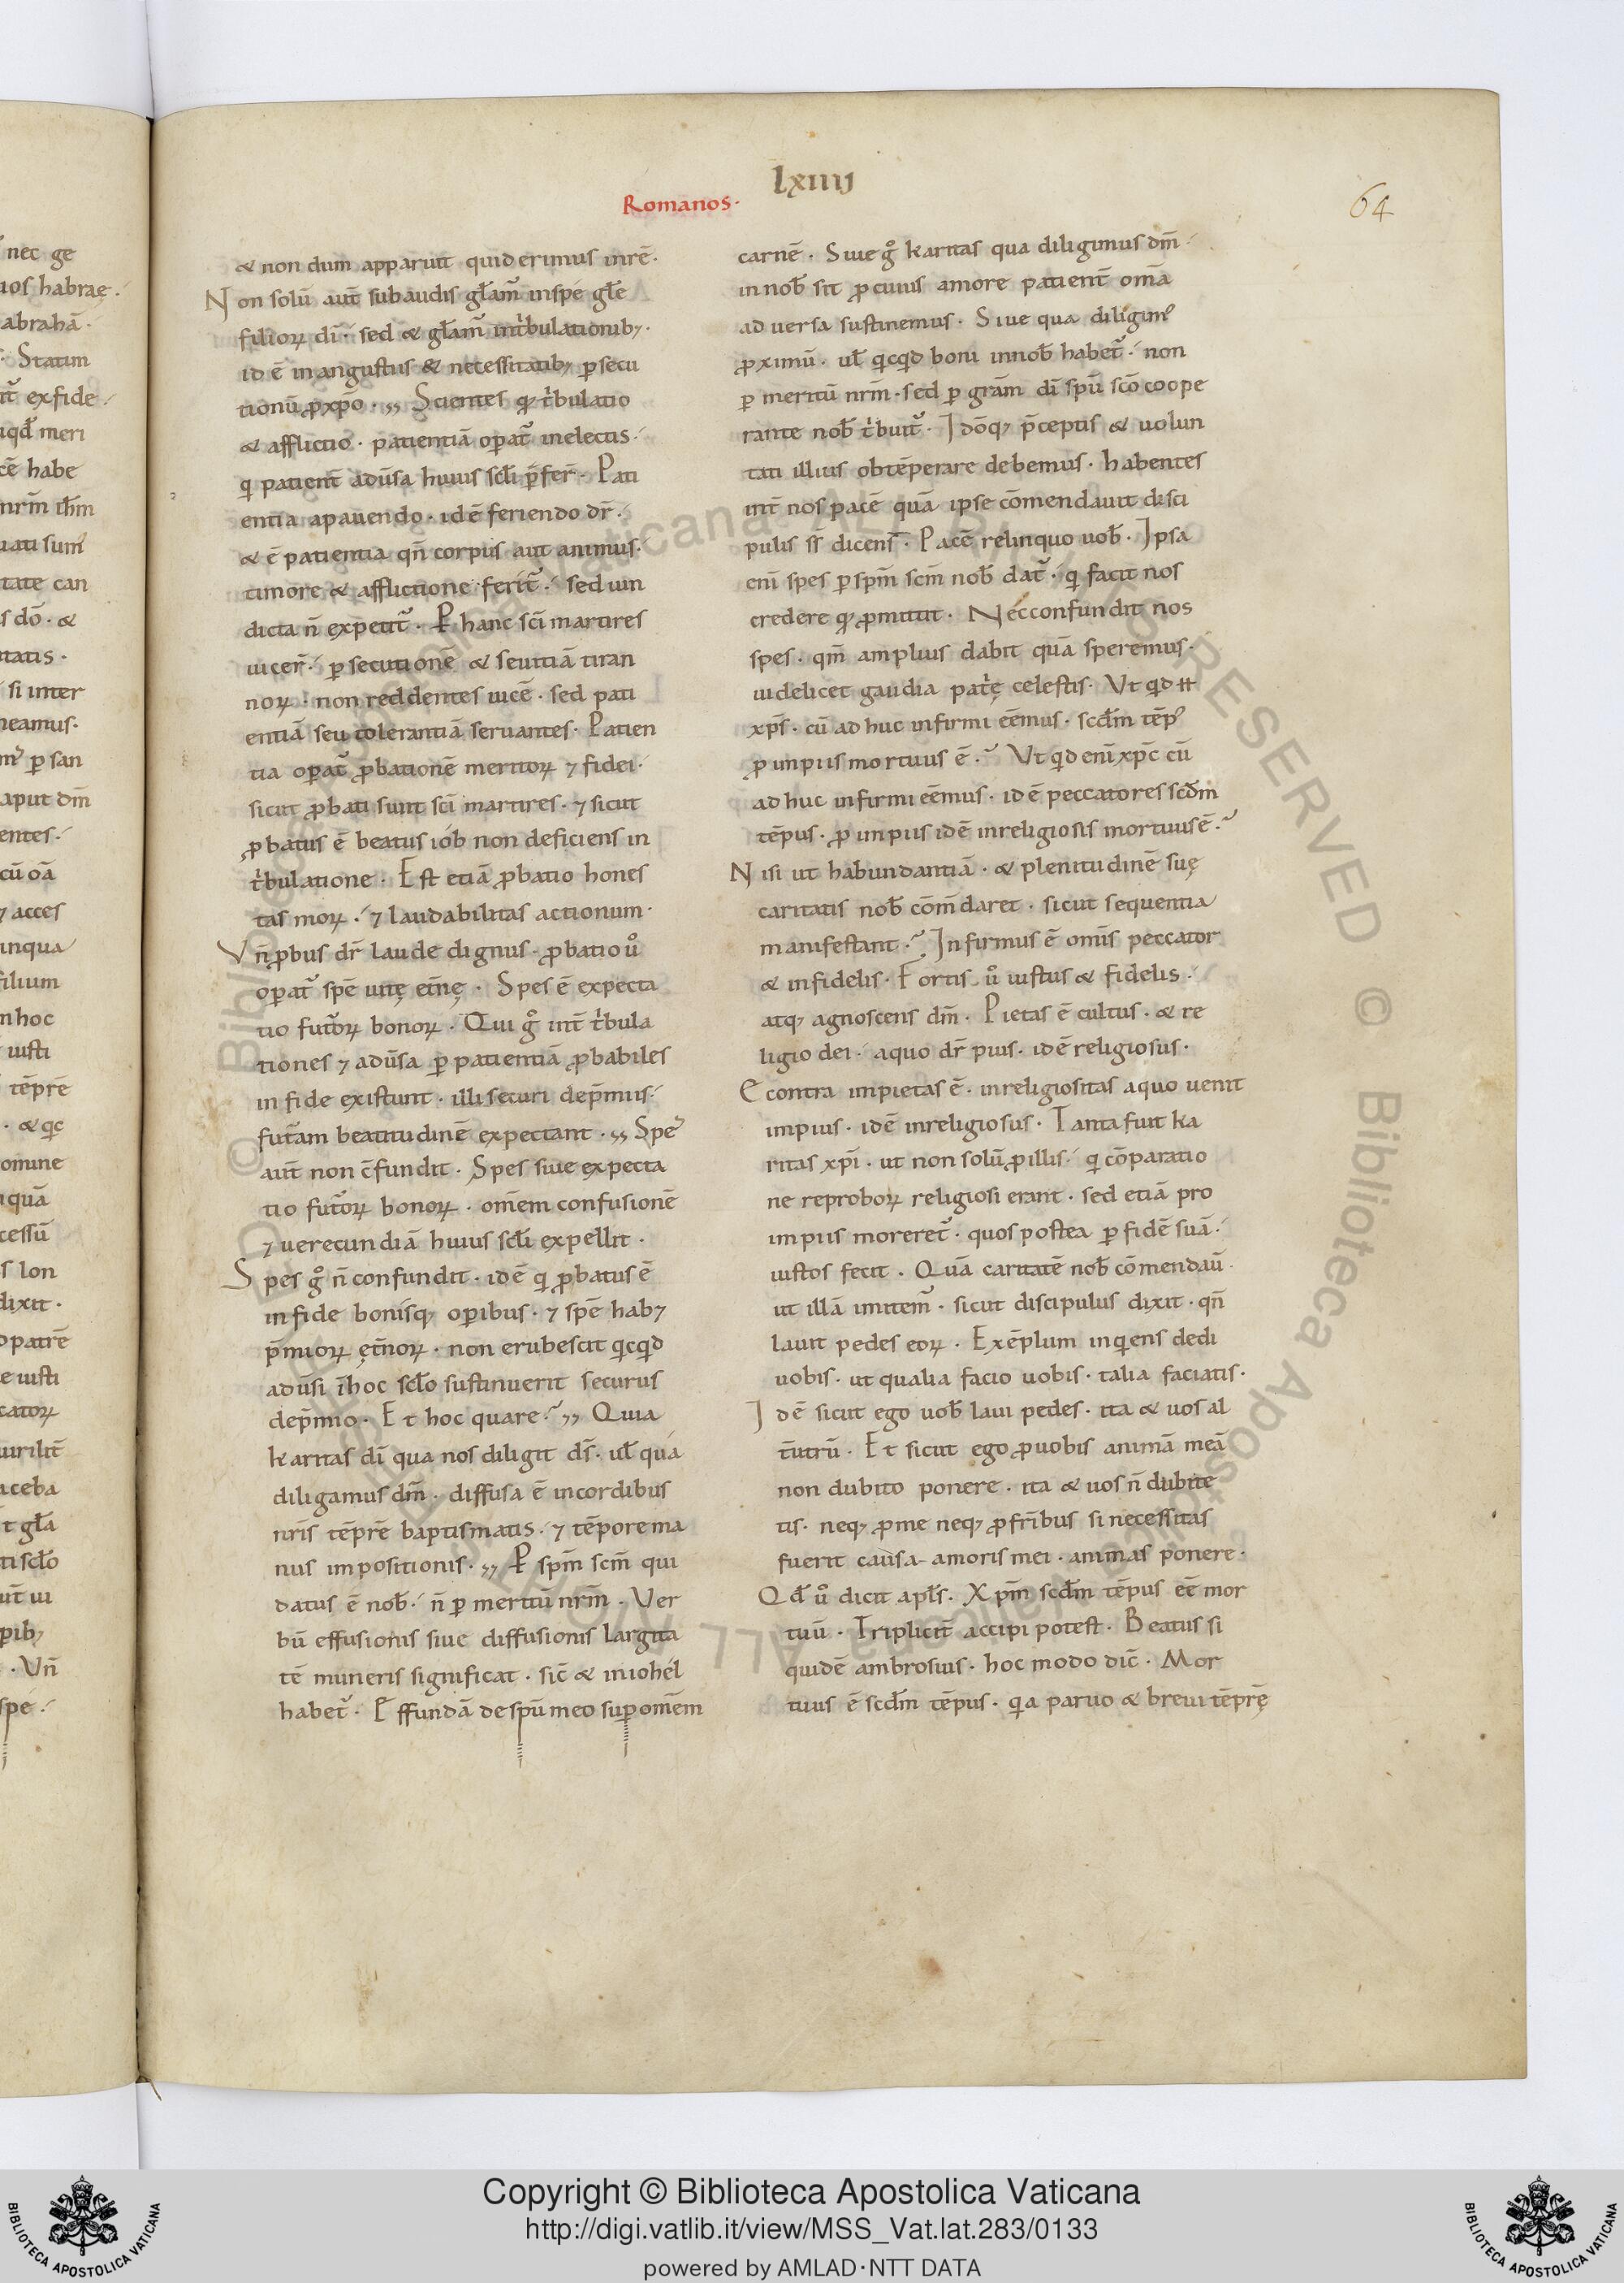 lxiiij
Romanos·
64
& non dum apparuit quid erimus inrē·
Non solū aut̄ subaudis gl̄am̄ inspe gl̄e
filioꝝ dī· sed & gl̄am̄ intͥbulationibꝫ·
id ē inangustiis & necessitatibꝫ ꝑsecu
tionū ꝓxp̄o· Scientes qͥ tͥbulatio
& afflictio· patientiā oꝑat᷑ inelectis·
qͥ patient̄ adūsa huius scl̄i p̄fer̄· Pati
entia apauendo· idē feriendo dr̄·
& ē patientia qn̄ corpus aut animus·
timore & afflictione ferit᷑· sed uin
dicta n̄ expetit᷑· Ꝑ hanc sc̄i martires
uicer̄· ꝑsecutionē & seuitiā tiran
noꝝ· non reddentes uicē· sed pati
entiā seu tolerantiā seruantes· Patien
tia oꝑat᷑ ꝓbationē meritoꝝ ⁊ fidei·
sicut ꝓbati sunt sc̄i martires· ⁊ sicut
ꝓbatus ē beatus iob non deficiens in
tͥbulatione· Est etiā ꝓbatio hones
tas moꝝ· ⁊ laudabilitas actionum·
Vn̄ ꝓbus dr̄ laude dignus· ꝓbatio uͦ
oꝑat᷑ spē uitę et̄nę· Spes ē expecta
tio fut᷑oꝝ bonoꝝ· Qui gͦ int̄ tͥbula
tiones ⁊ adūsa ꝑ patientiā ꝓbabiles
in fide existunt· illi securi dep̄miis·
fut᷑am beatitudinē expectant· Spes
aut̄ non c̄fundit· Spes siue expecta
tio fut᷑oꝝ bonoꝝ· om̄em confusionē
⁊ uerecundiā huius scl̄i expellit·
Spes gͦ n̄ confundit· idē qͥ ꝓbatus ē
in fide bonisqꝫ oꝑibus· ⁊ spē habꝫ
p̄mioꝝ ęt̄noꝝ· non erubescit qͥcqͥd
adūsi ī hoc scl̄o sustinuerit securus
dep̄mio· Et hoc quare? Quia
karitas dī qua nos diligit ds̄· ul̄ qua
diligamus dm̄· diffusa ē incordibus
nr̄is tēpr̄e baptismatis· ⁊ tēpore ma
nus impositionis· Ꝑ sp̄m sc̄m qui
datus ē nob̄· n̄ ꝑ meritū nr̄m· Ver
bū effusionis siue diffusionis largita
tē muneris significat· sic̄ & iniohel
habet᷑· Effundā de sp̄u meo suꝑ om̄em
carnē· Siue gͦ karitas qua diligimus dm̄
in nob̄ sit ꝓ cuius amore patient̄ om̄a
aduersa sustinemus· Siue qua diligimꝰ
ꝓximū· ul̄ qͥcqͥd boni innob̄ habet᷑· non
ꝑ meritū nr̄m· sed ꝑ gr̄am dī sp̄u sc̄o coope
rante nob̄ tͥbuit᷑· Idōqꝫ p̄ceptis & uolun
tati illius obtēperare debemus· habentes
int̄ nos pacē quā ipse cōmendauit disci
pulis sͥ dicens· Pacē relinquo uob̄· Ipsa
enī spes ꝑ sp̄m sc̄m nob̄ dat᷑· qͥ facit nos
credere qͥ ꝓmittit· Nec confundit nos
spes· qm̄ amplius dabit quā speremus·
uidelicet gaudia patͥę celestis· Vt qͥd
xp̄s· cū ad huc infirmi eēmus· scd̄m tēpꝰ
ꝓ impiis mortuus ē? Vt qͥd enī xp̄c cū
ad huc infirmi eēmus· idē peccatores scd̄m
tēpus· ꝓ impiis idē inreligiosis mortuus ē?
Nisi ut habundantiā· & plenitudinē suę
caritatis nob̄ cōm̄daret· sicut sequentia
manifestant? Infirmus ē omīs peccator
& infidelis· Fortis uͦ iustus & fidelis·
atqꝫ agnoscens dm̄· Pietas ē cultus· & re
ligio dei· aquo dr̄ pius· idē religiosus·
Econtra impietas ē· inreligiositas aquo uenit
impius· idē inreligiosus· Tanta fuit ka
ritas xp̄i· ut non solū ꝓ illis· qͥ cōparatio
ne reproboꝝ religiosi erant· sed etiā pro
impiis moreret᷑· quos postea ꝑ fidē suā·
iustos fecit· Quā caritatē nob̄ cōmendaū·
ut illā imitem᷑· sicut discipulus dixit· qn̄
lauit pedes eoꝝ· Exēplum inqͥens dedi
uobis· ut qualia facio uobis· talia faciatis·
Idē sicut ego uob̄ laui pedes· ita & uos al
t̄utrū· Et sicut ego ꝓ uobis animā meā
non dubito ponere· ita & uos n̄ dubite
tis· neqꝫ ꝓ me neqꝫ ꝓ fr̄ibus si necessitas
fuerit causa amoris mei· animas ponere·
Qd̄ uͦ dicit apl̄s· Xp̄m scd̄m tēpus eē mor
tuū· Triplicit̄ accipi potest· Beatus si
quidē ambrosius· hoc modo dic̄· Mor
tuus ē scd̄m tēpus· qͥa paruo & breui tēpr̄ę
Copyright © Biblioteca Apostolica Vaticana
http://digi.vatlib.it/view/MSS_Vat.lat.283/0133
powered by AMLAD·NTT DATA